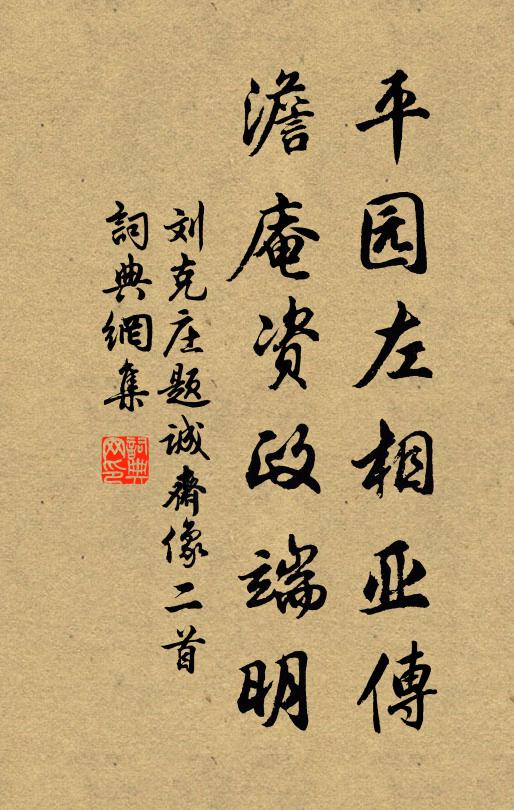 平园左相亚傅
澹庵资政端明
刘克庄题诚齋像二首
詞典網集
詞典网印